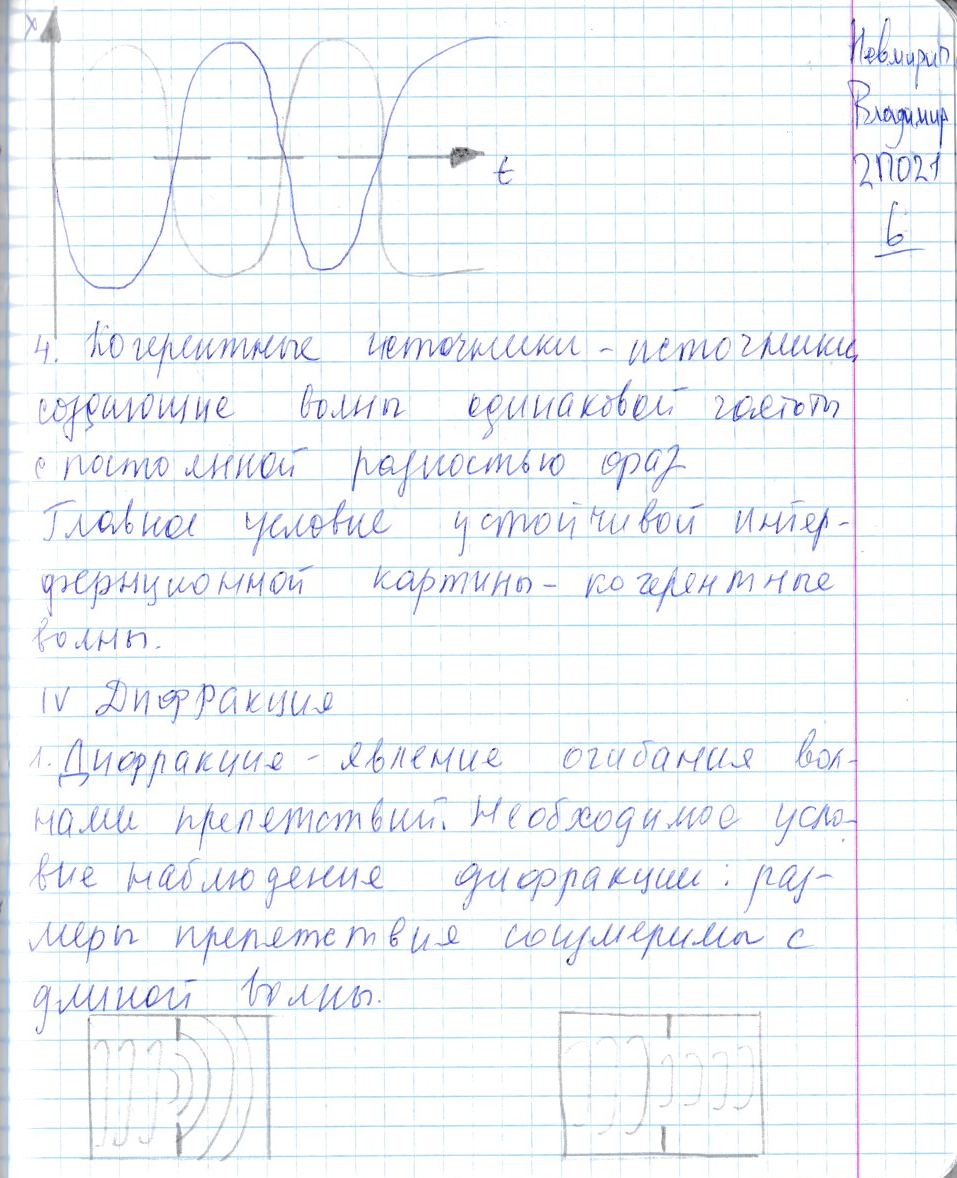 x
t
Невмирип
Владимир
2П021
6
4. Когерентные источники - источники,
создающие волны одинаковой частоты
с постоянной разностью фаз
Главное условие устойчивой интер-
ференционной картины - когерентные
волны.
IV Дифракция
1. Дифракция - явление огибания вол-
нами препятствий. Необходимое усло-
вие наблюдения дифракции: раз-
меры препятствия соизмеримы с
длиной волны.